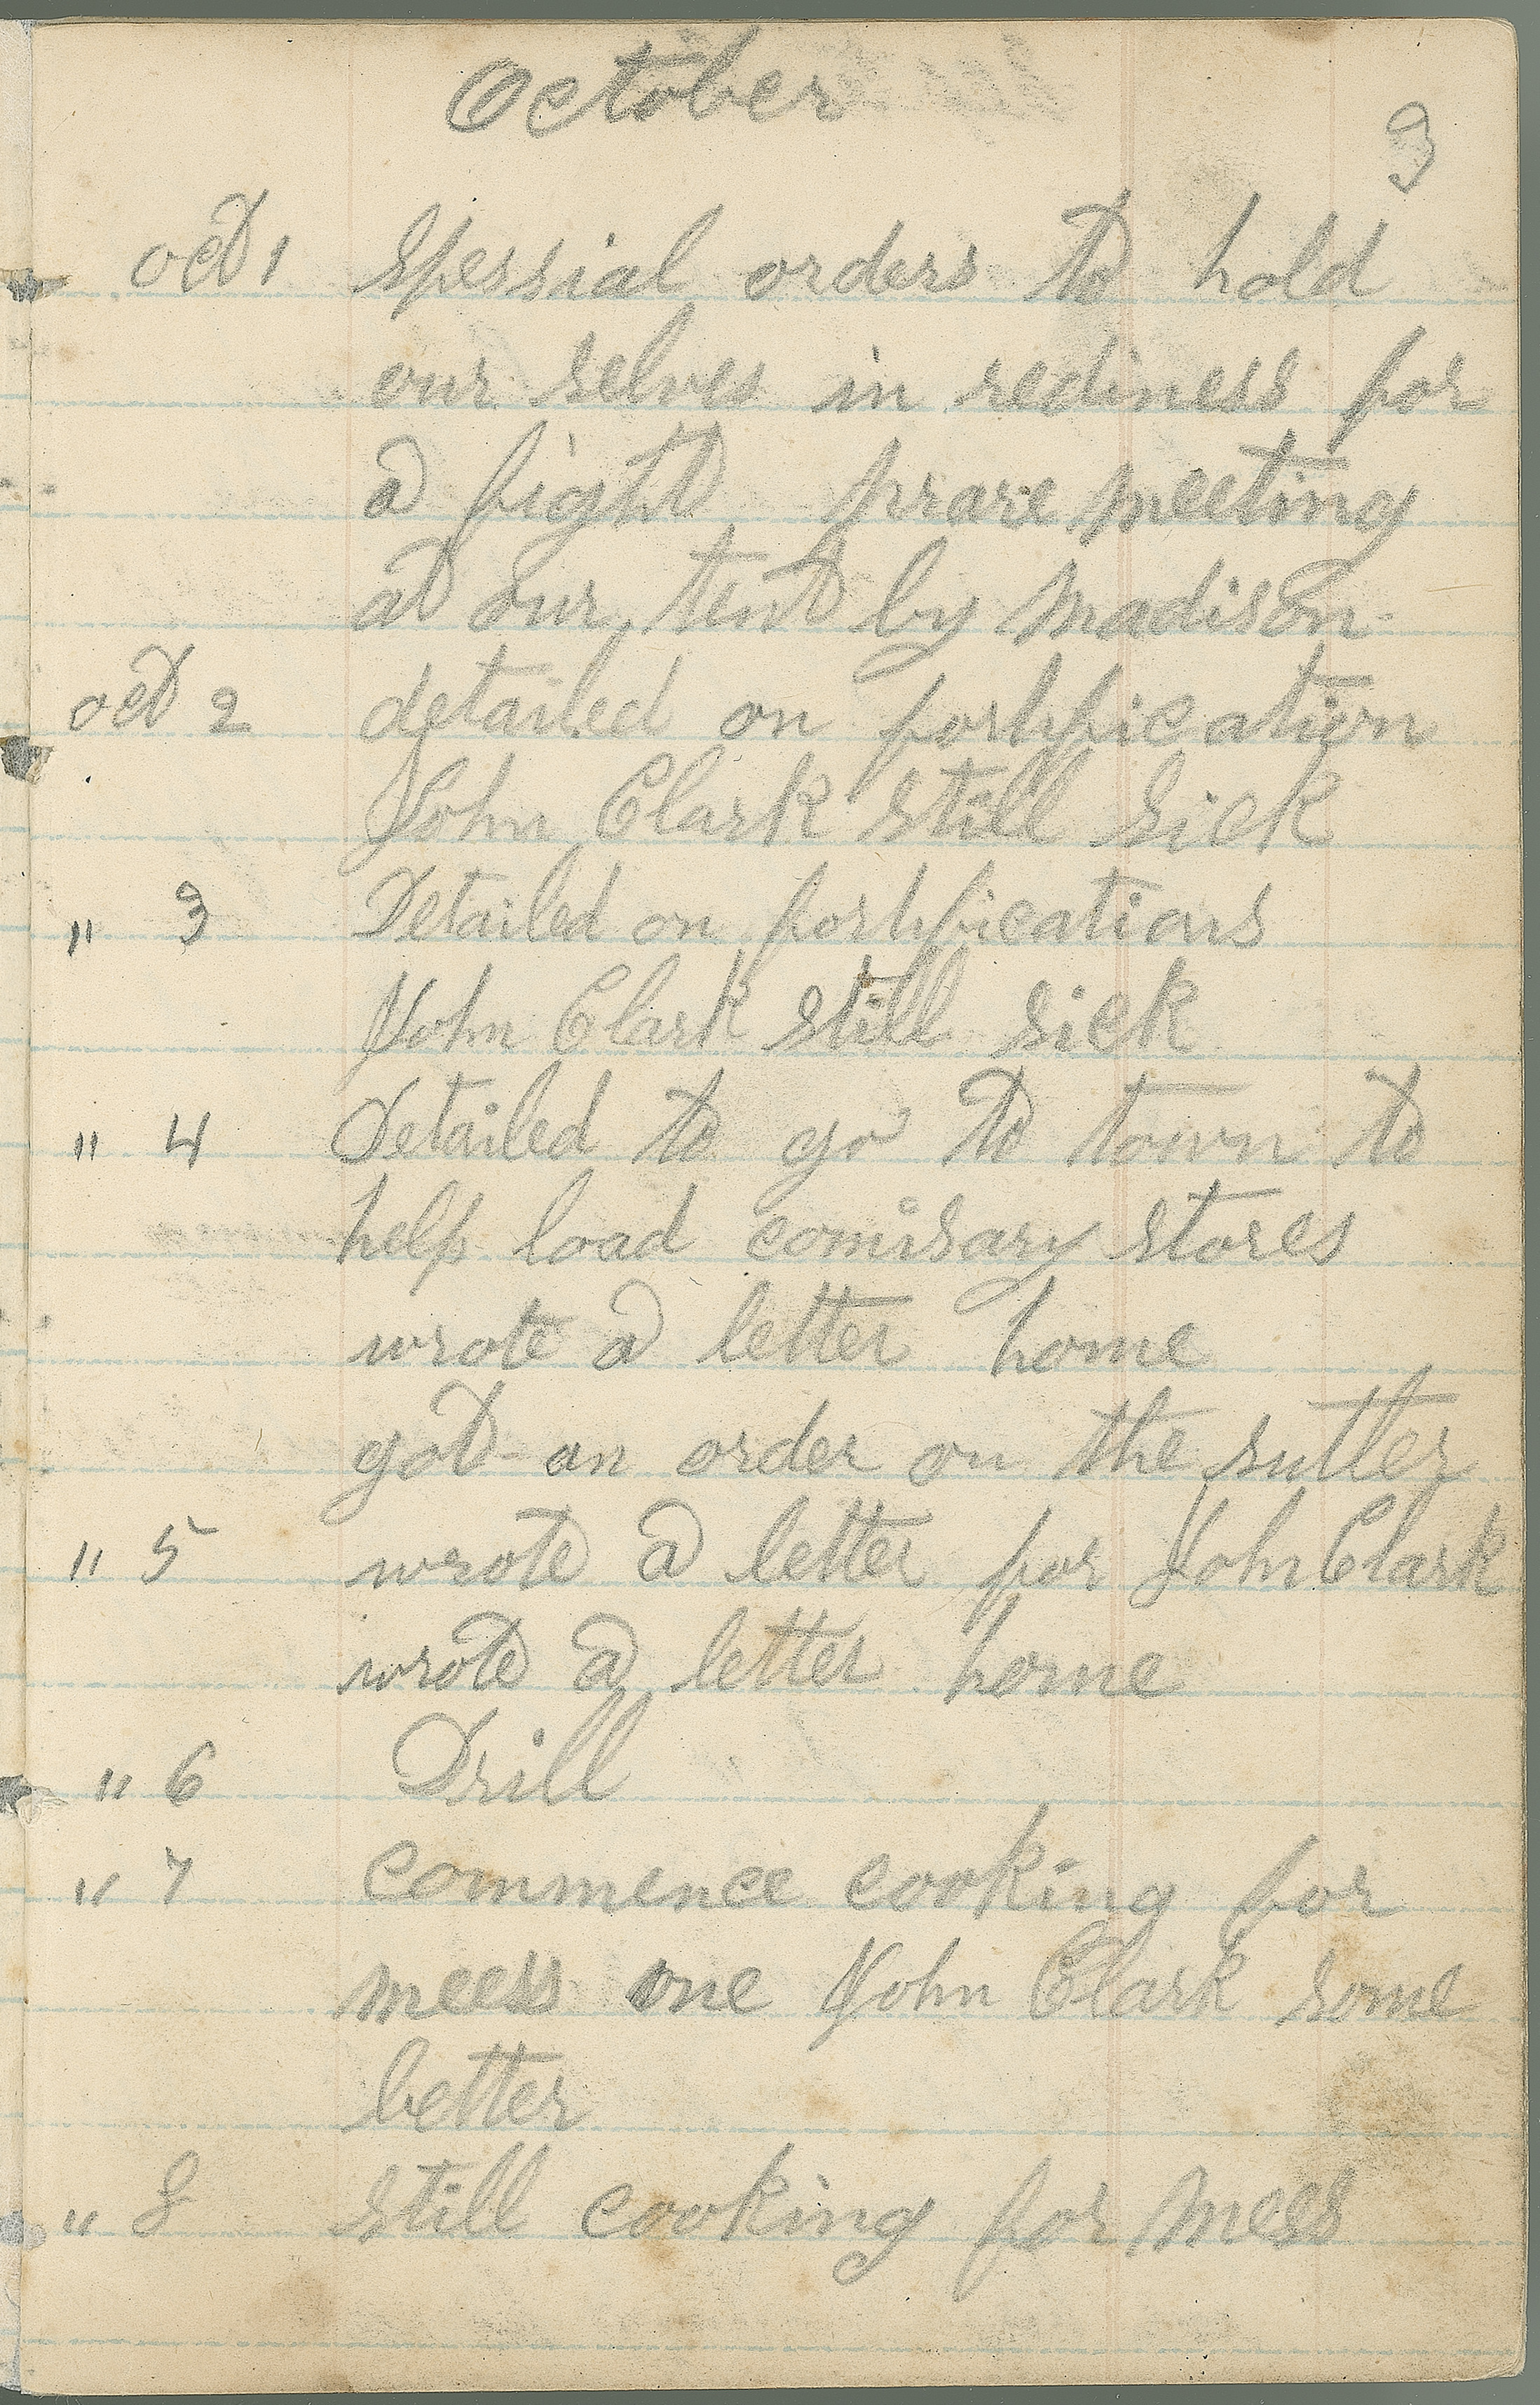 October
3
oct 1 spessial orders to hold
our selves in rediness for
a fight prare meeting
at our tent by madison
oct 2 detailed on fortification
John Clark still sick
" 3 Detailed on fortifications
John Clark still sick
" 4 Detailed to go to town to
help load comisary stores
wrote a letter home
got an order on the sutler
" 5 wrote a letter for John Clark
wrote a letter home
" 6 Drill
" 7 commence cooking for
meess one John Clark some
better
" 8 still cooking for mess